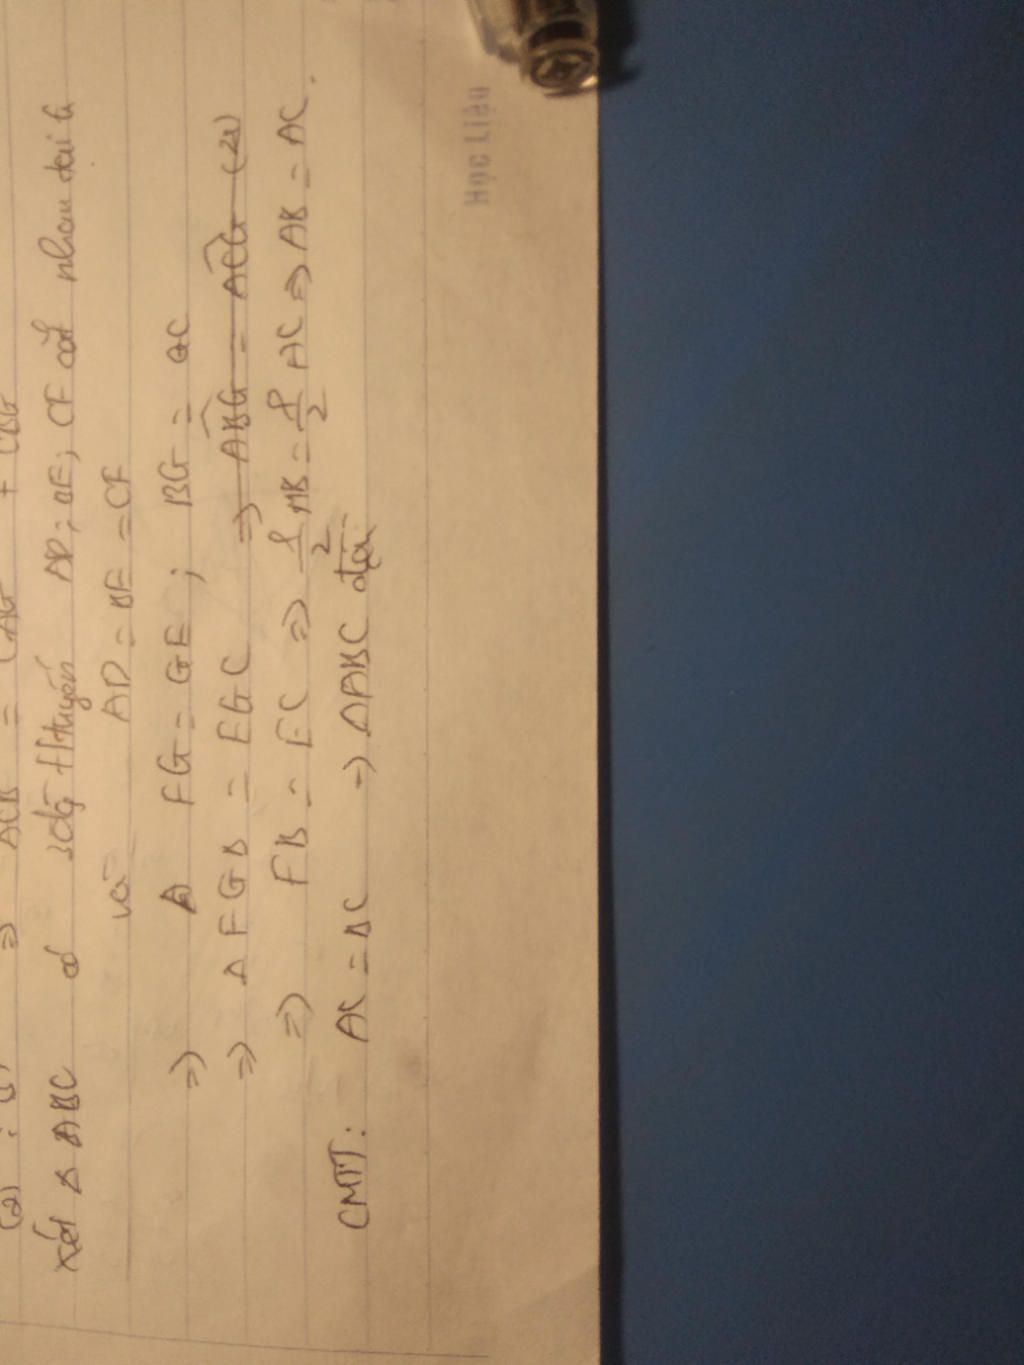 (2) ⇒ ACB = CAG + CBG
Xét Δ ABC có 3 đg Ttuyến AD; BE; CF cắt nhau tại G
và AD = BE = CF
⇒ FG = GE; BG = GC
⇒ Δ FGB = EGC ⇒ ABG = ACG (2)
⇒ FB = EC ⇒ 1/2 AB = 1/2 AC ⇒ AB = AC.
CMTT: AC = BC ⇒ ΔABC đều.
Học Liệu